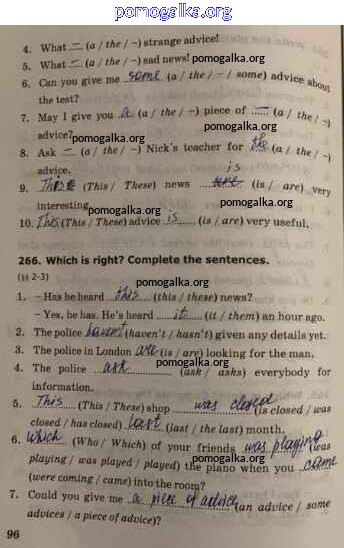 pomogalka.org
4. What – (a / the / –) strange advice!
5. What – (a / the / –) sad news!
pomogalka.org
6. Can you give me some (a / the / – / some) advice about
the test?
pomogalka.org
7. May I give you a (a / the / –) piece of – (a / the / –)
advice?
pomogalka.org
pomogalka.org
8. Ask – (a / the / –) Nick's teacher for the (a / the / –)
advice.
pomogalka.org
is
9. This (This / These) news are (is / are) very
interesting.
pomogalka.org
pomogalka.org
10. This (This / These) advice is (is / are) very useful.
266. Which is right? Complete the sentences.
(§§ 2-3)
pomogalka.org
1. – Has he heard this (this / these) news?
– Yes, he has. He's heard it (it / them) an hour ago.
2. The police haven't (haven't / hasn't) given any details yet.
3. The police in London are (is / are) looking for the man.
4. The police ask (ask / asks) everybody for
information.
pomogalka.org
5. This (This / These) shop was closed (is closed / was
closed / has closed) last (last / the last) month.
6. Which (Who / Which) of your friends was playing (was
playing / was played / played) the piano when you came
(were coming / came) into the room?
pomogalka.org
7. Could you give me a piece of advice (an advice / some
advices / a piece of advice)?
96
pomogalka.org